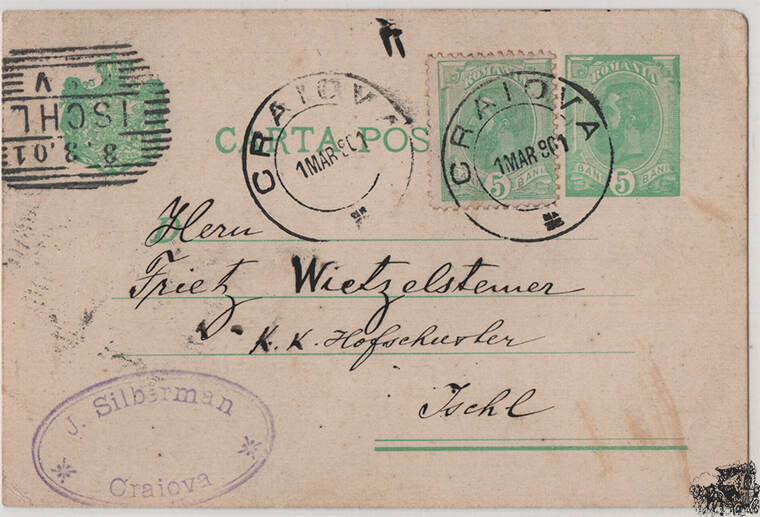 ISCHL
3.3.01
V
CARTA POS
CRAIOVA
1 MAR 901
ROMANIA
5 BANI
CRAIOVA
1 MAR 901
ROMANIA
BANI 5 BANI
D
Herrn
Frietz Wietzelsteiner
K. K. Hofschuster
Ischl
J. Silberman
Craiova